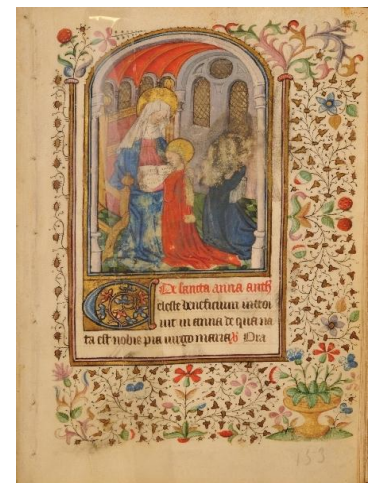 De sancta anna anth
Celeste beneficium introi
uit in anna de qua na
ta est nobis pia uirgo maria V Ora
153